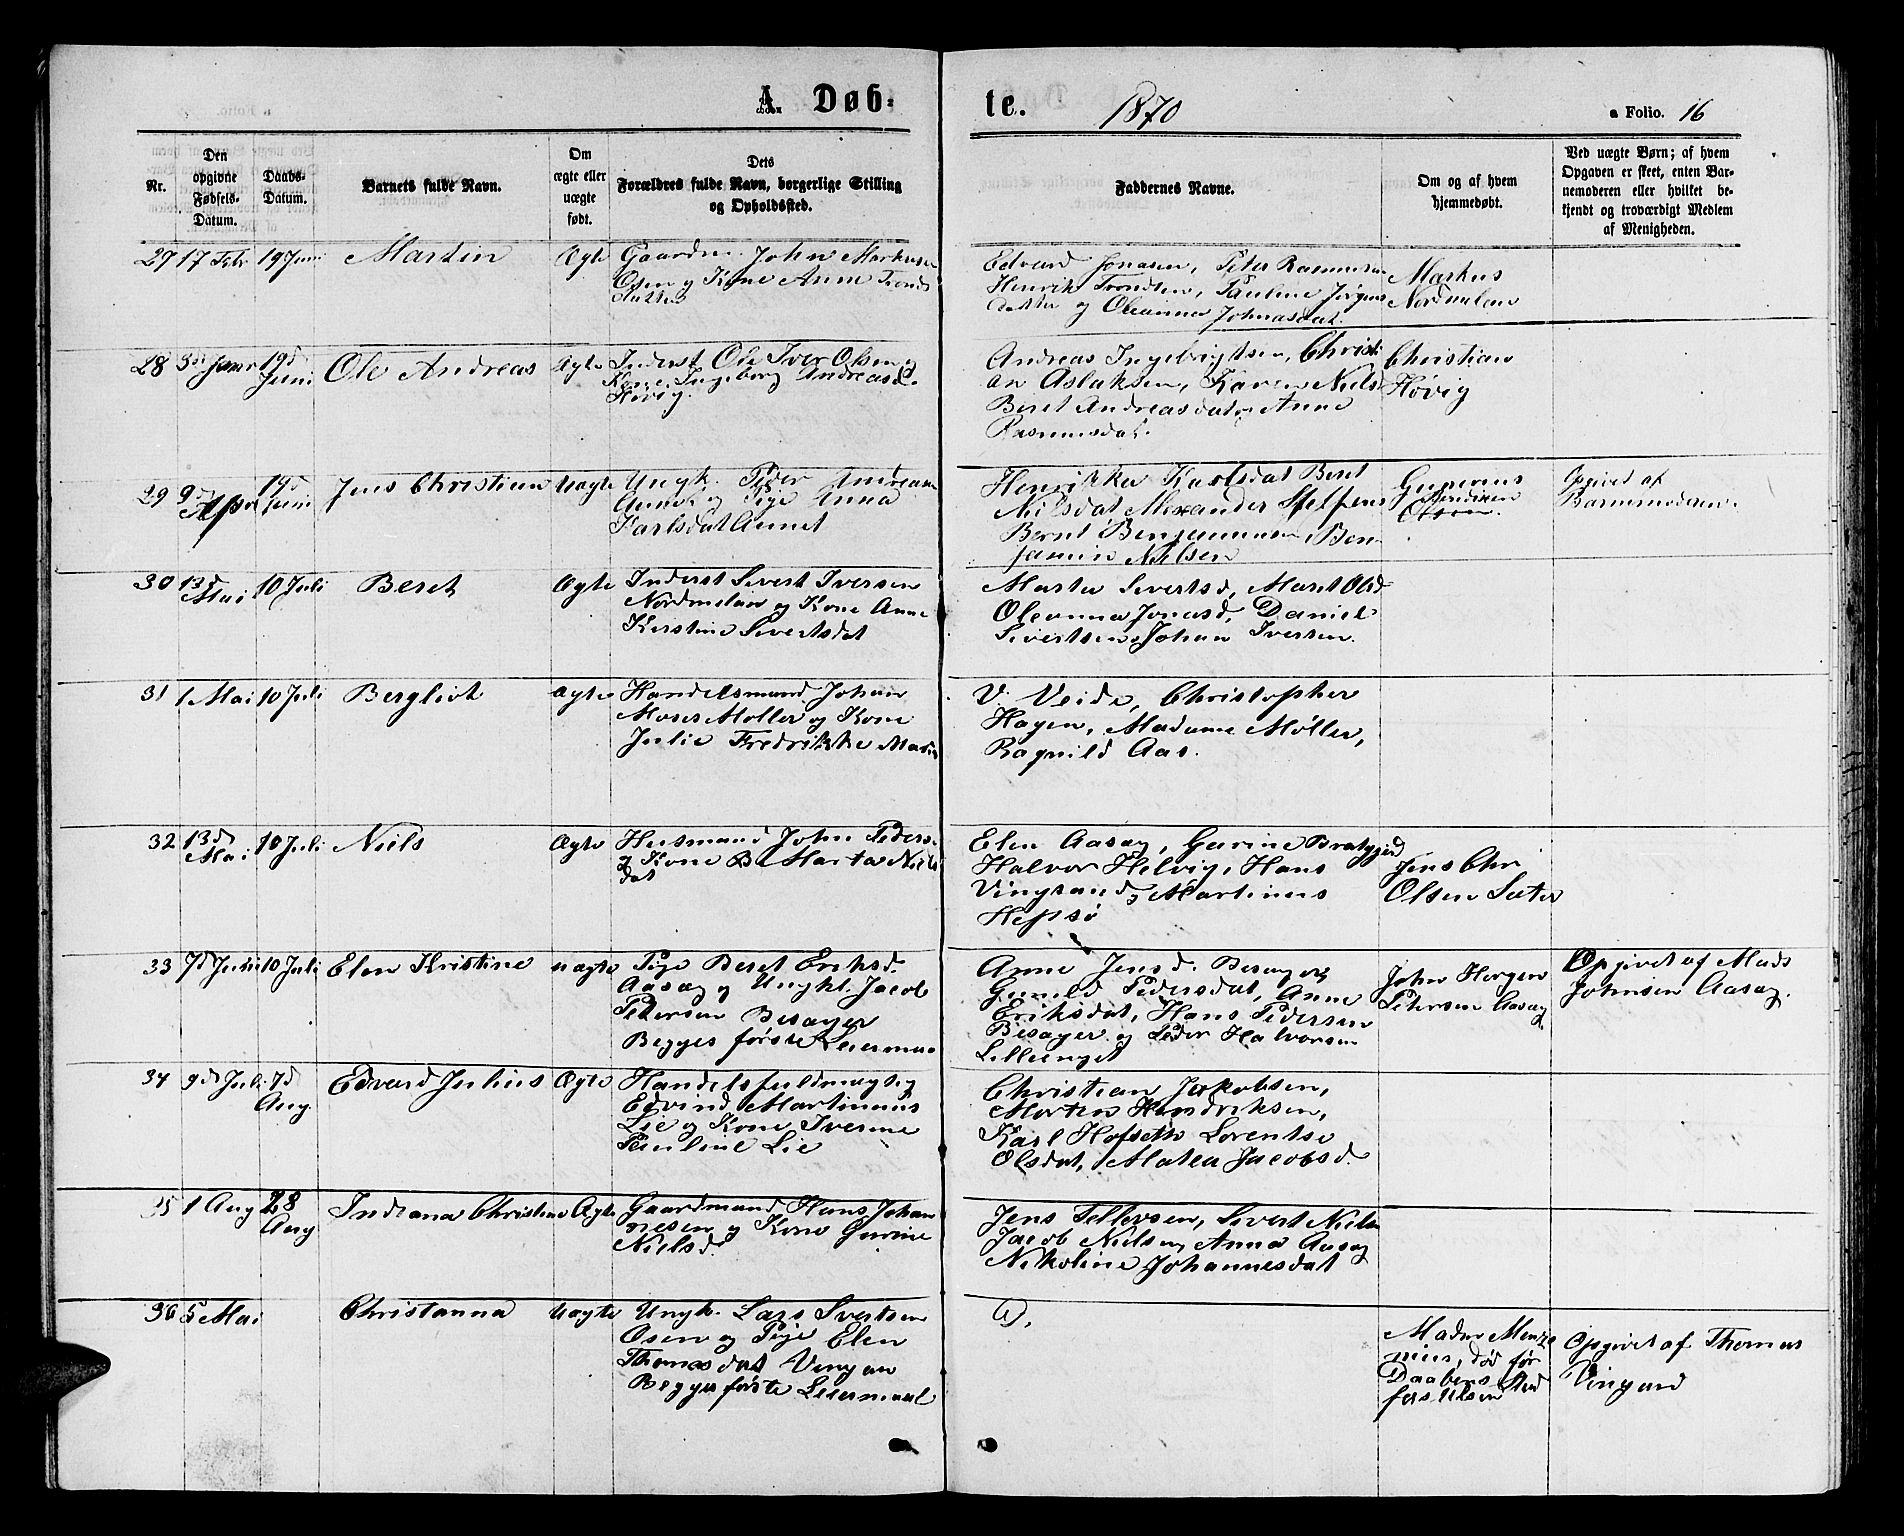 A. Døb-
te. 1870
a Folio. 16
Nr.
Den opgivne Fødsels-Datum.
Daabs-Datum.
Barnets fulde Navn.
Om ægte eller uægte født.
Dets Forældres fulde Navn, borgerlige Stilling og Opholdssted.
Faddernes Navne.
Om og af hvem hjemmedøbt.
Ved uægte Børn; af hvem Opgaven er skeet, enten Barnemoderen eller hvilket bekjendt og troværdigt Medlem af Menigheden.
27 17 Febr 19 Juni Martin Ægte
Gaardm. John Markusen
Osen og Kone Anne Tronds
datter
Edvard Jonasen, Peter Rasmusen
Henrik Trondsen, Pauline Jørgens
datter og Oleanna Johnasdat.
Markus
Nordmelan
28 3di Janr 19d Juni Ole Andreas Ægte
Inderst Ole Iver Olsen og
Kone Ingeborg Andreasd.
Høvig.
Andreas Ingebrigtsen, Christi
an Aslaksen, Karen Nielsd
Beret Andreasdat og Anne
Rasmusdat.
Christian
Høvig
29 9d Apr 19d Juni Jens Christian Uægte
Ungk. Peder Andreasen
og Pige Anna
Karlsdat Aunet
Henrikka Karlsdat Beret
Nielsdat Alexander Steffens
Bernt Benjaminsen, Ben
jamin Nielsen
Gunerius
Olsen.
Opgivet af
Barnemoderen.
30 13d Mai 10 Juli Beret Ægte
Inderst Sivert Iversen
Nordmelan og Kone Anne
Kerstine Sivertsdat
Marta Sivertsd, Maret Olsd
Oleanna Jonasd, Daniel
Sivertsen, Johan Iversen.
31 1 Mai 10 Juli Bergliot Ægte
Handelsmand Johan
Moses Møller og Kone
Julie Fredrikke Marie
V. Veide, Christopher
Hagen, Madame Møller,
Ragnild Aas.
32 13d Mai 10 Juli Niels Ægte
Husmand John Peders.
og Kone B. Marta Niels
dat
Elen Aasag, Gurine Bratgjerd
Halvor Helvig, Hans
Vingsand, Martinus
Hepsø
Jens Chr
Olsen Sæter
33 7d Juni 10 Juli Elen Kristine Uægte
Pige Beret Eriksd.
Aasag og Ungk. Jacob
Petersen Besager
Begges første Leiermaal
Anne Jensd. Besager,
Gunild Pedersdat, Anne
Eriksdat, Hans Pedersen
Besager og Peder Halvorsen
Lillienget
John Horgen
Petersen Aasag
Opgivet af Mads
Johnsen Aasag.
34 9d Juli 7d Aug. Edvard Julius Ægte
Handelsfuldmægtig
Edvind Martinnus
Lie og Kone Iverine
Pauline Lie
Christian Jakobsen,
Morten Hendriksen,
Karl Hofseth Lorentse
Olsdat, Matea Jacobsd.
35 1 Aug 28 Aug Indiana Christine Ægte
Gaardmand Hans Johan
nesen og Kone Gurine
Nielsd.
Jens Tellevsen, Sivert Niels
Jacob Nielsen, Anna Aasag
Nikoline Johannesdat
36 5 Mai Christanna Uægte
Ungk. Lars Sivertsen
Osen og Pige Elen
Thomasdat Vingsan
Begges første Leiermaal
død før
Daaben
Opgivet af Thomas
Vingsand